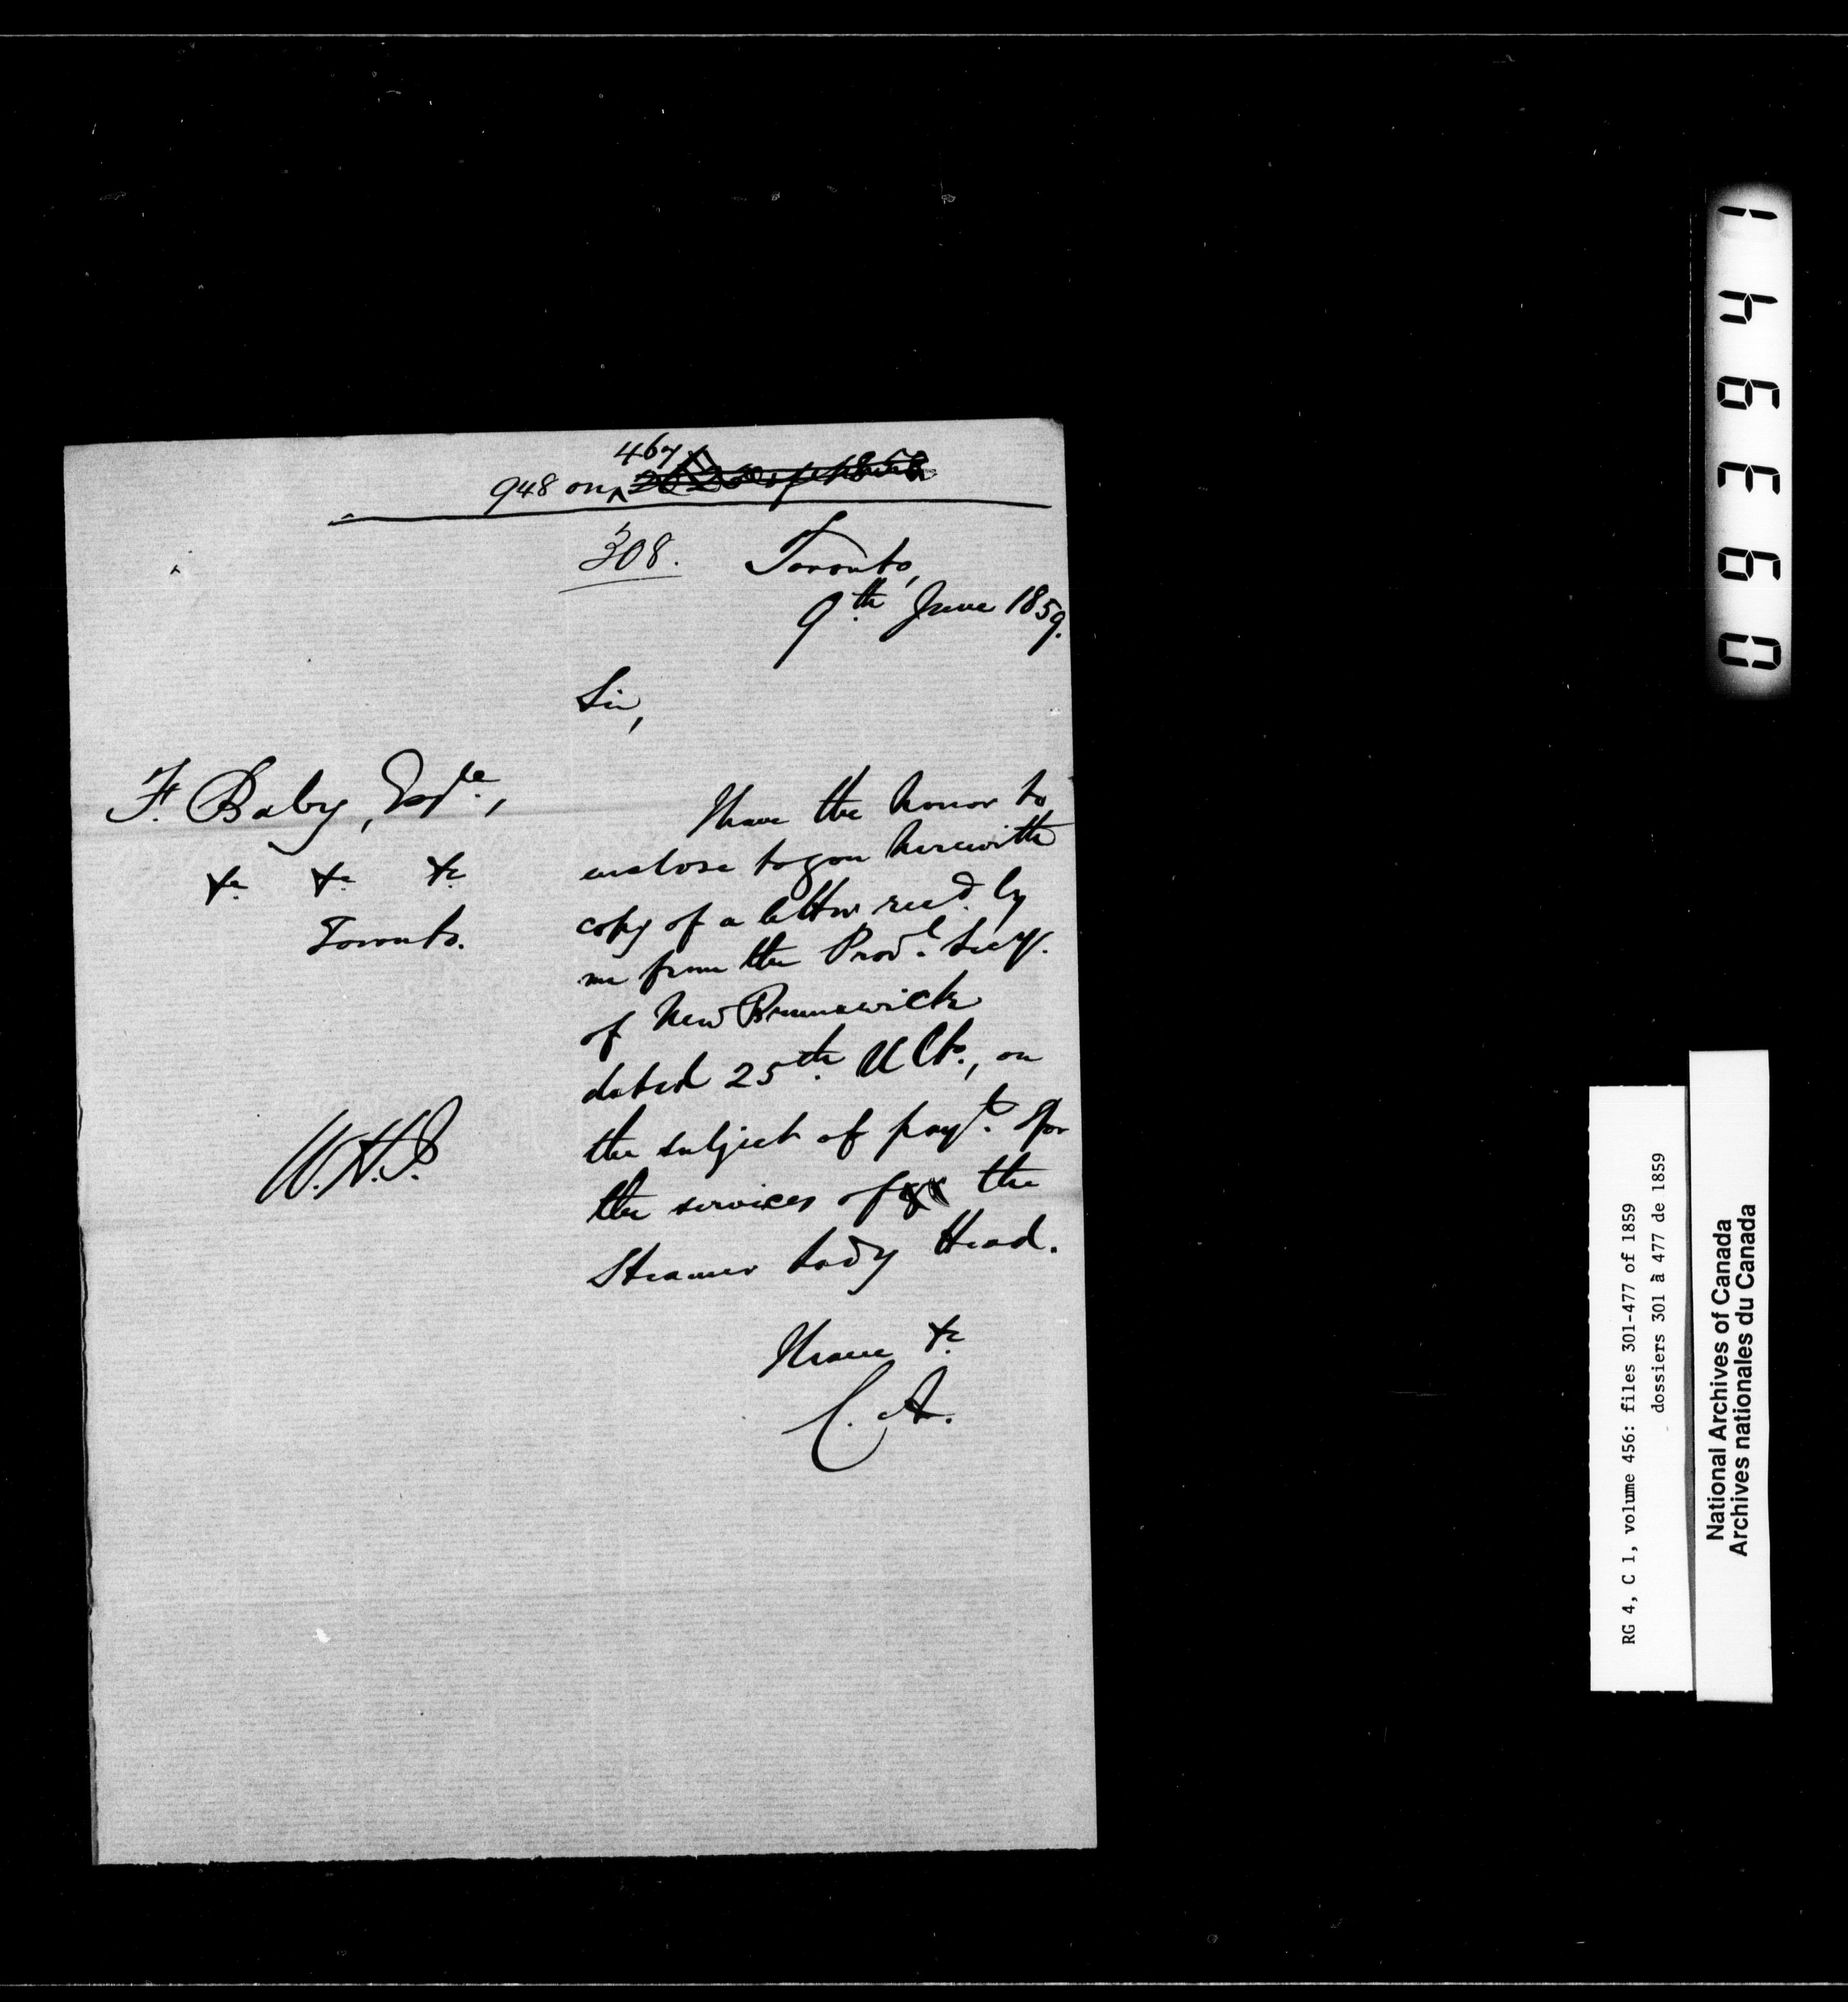 467
948 on ^
308.
Toronto,
9th June 1859.
Sir,
F. Baby, Esqre.,
&c &c &c
Toronto.
I have the honor to
enclose to you herewith
copy of a letter recd. by
me from the Provl. Secy.
of New Brunswick
dated 25th Ulto., on
the subject of payt. for
the services of the
Steamer Lady Head.
I have &c
C. A.
W.H.J.
RG 4, C 1, volume 456: files 301-477 of 1859
dossiers 301 à 477 de 1859
National Archives of Canada
Archives nationales du Canada
0963941